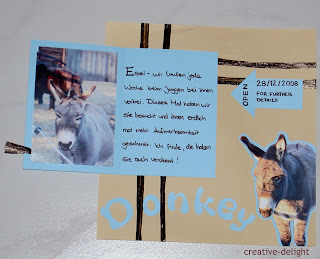 Esel - wir laufen jede
Woche beim Joggen bei ihnen
vorbei. Dieses Mal haben wir
sie besucht und ihnen endlich
mal mehr Aufmerksamkeit
geschenkt. Ich finde, die haben
sie auch verdient!
OPEN
28/12/2008
FOR FURTHER
DETAILS
Donkey
creative-delight